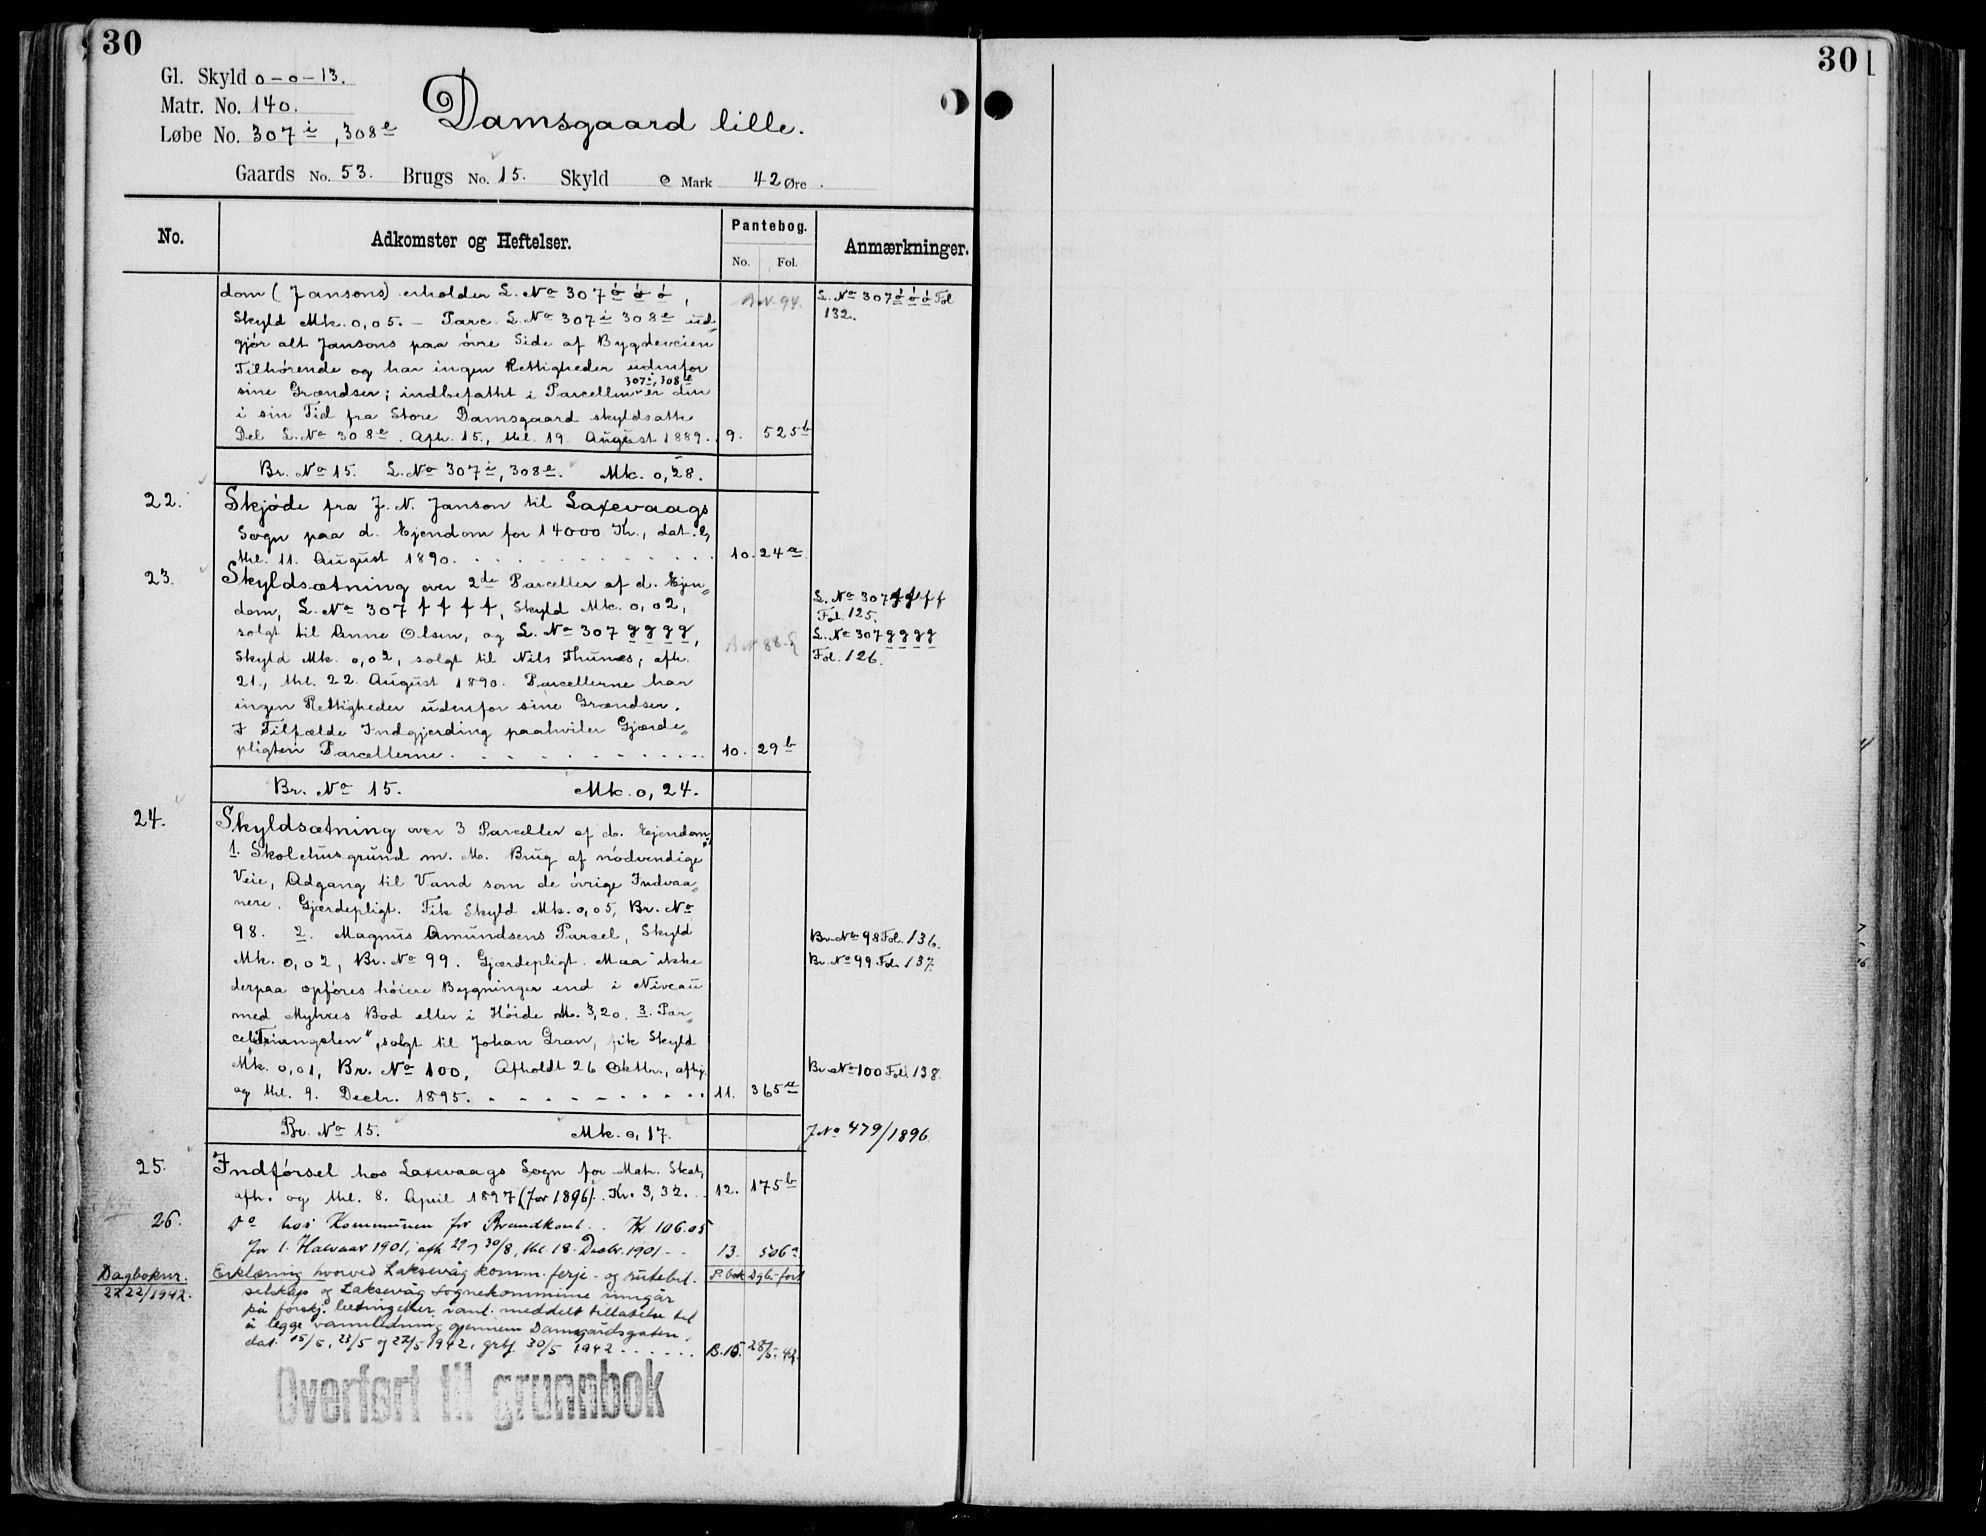 30
Gl. Skyld 0-0-13.
Matr. No. 140.
Løbe No. 307 i, 308 e
Damsgaard lille.
Gaards No. 53. Brugs No. 15. Skyld 0 Mark 42 Øre.
No.
Adkomster og Heftelser.
Pantebog.
No. Fol.
Anmærkninger.
dom (Jansons) erholder L. No 307 ó ó ó,
L. No 307 ó ó ó Fol
132.
Skyld Mk. 0,05. - Parc. L. No 307 i 308 e ud-
gjör alt Jansons paa övre Side af Bygdeveien
Tilhörende og har ingen Rettigheder udenfor
sine Grændser; indbefattet i Parcellen 307 i, 308 e er den
i sin Tid fra Store Damsgaard skyldsatte
Del L. No 308 e. Afh. 15., thl. 19. August 1889. 9. 525 b
Br. No 15. L. No 307 i, 308 e. Mk. 0,28.
22. Skjöde fra J. N. Janson til Laxevaags
Sogn paa d. Ejendom for 14000 Kr., dat. &
thl. 11. August 1890. 10. 24 a
23. Skyldsætning over 2de Parceller af d. Ejen-
dom, L. No 307 f f f f, Skyld Mk. 0,02,
L. No 307 f f f f
Fol. 125.
solgt til Anne Olsen, og L. No 307 g g g g,
L. No 307 g g g g
Skyld Mk. 0,02, solgt til Nils Thunes; afh.
Fol. 126.
21., thl. 22. August 1890. Parcellerne har
ingen Rettigheder udenfor sine Grændser.
I Tilfælde Indgjerding paahviler Gjærde-
pligten Parcellerne. 10. 29 b
Br. No 15. Mk. 0,24.
24. Skyldsætning over 3 Parceller af d. Ejendom:
1. Skolehusgrund m. M. Brug af nödvendige
Veie, Adgang til Vand som de övrige Indvaa-
nere. Gjærdepligt. Fik Skyld Mk. 0,05, Br. No
98. 2. Magnus Amundsens Parcel, Skyld
Br. No 98 Fol. 136.
Mk. 0,02, Br. No 99. Gjærdepligt. Maa ikke
Br. No 99 Fol. 137.
derpaa opföres höiere Bygninger end i Niveau
med Myhres Bod eller i Höide M. 3,20. 3. Par-
cel "Triangelen", solgt til Johan Gran, fik Skyld
Mk. 0,01, Br. No 100, Afholdt 26 Oktbr., afhj.
Br. No 100 Fol. 138.
og thl. 9. Decbr. 1895. 11. 365 a
Br. No 15. Mk. 0,17.
J No 479/1896.
25. Indförsel hos Laxevaags Sogn for Matr. Skat,
afh. og thl. 8. April 1897 (for 1896). Kr. 3,32. 12. 175 b
26. do hos Kommunen for Brandkont. Kr 106.05
for 1. Halvaar 1901, afh. 29 30/8, thl. 18. Decbr. 1901. 13. 506 a
Dagboknr. 2222/1942. Erklæring hvorved Laksevåg komm. ferje- og rutebil-
P. bok Dgb. ført
selskap og Laksevåg sognekommune inngår
på forskj. betingelser meddelt tillatelse til
å legge vannledning gjennem Damsgårdsgaten,
dat. 15/5, 23/5 og 27/5 1942, 30/5 1942. B. 15. 28/5-42.
Overført til grunnbok
301